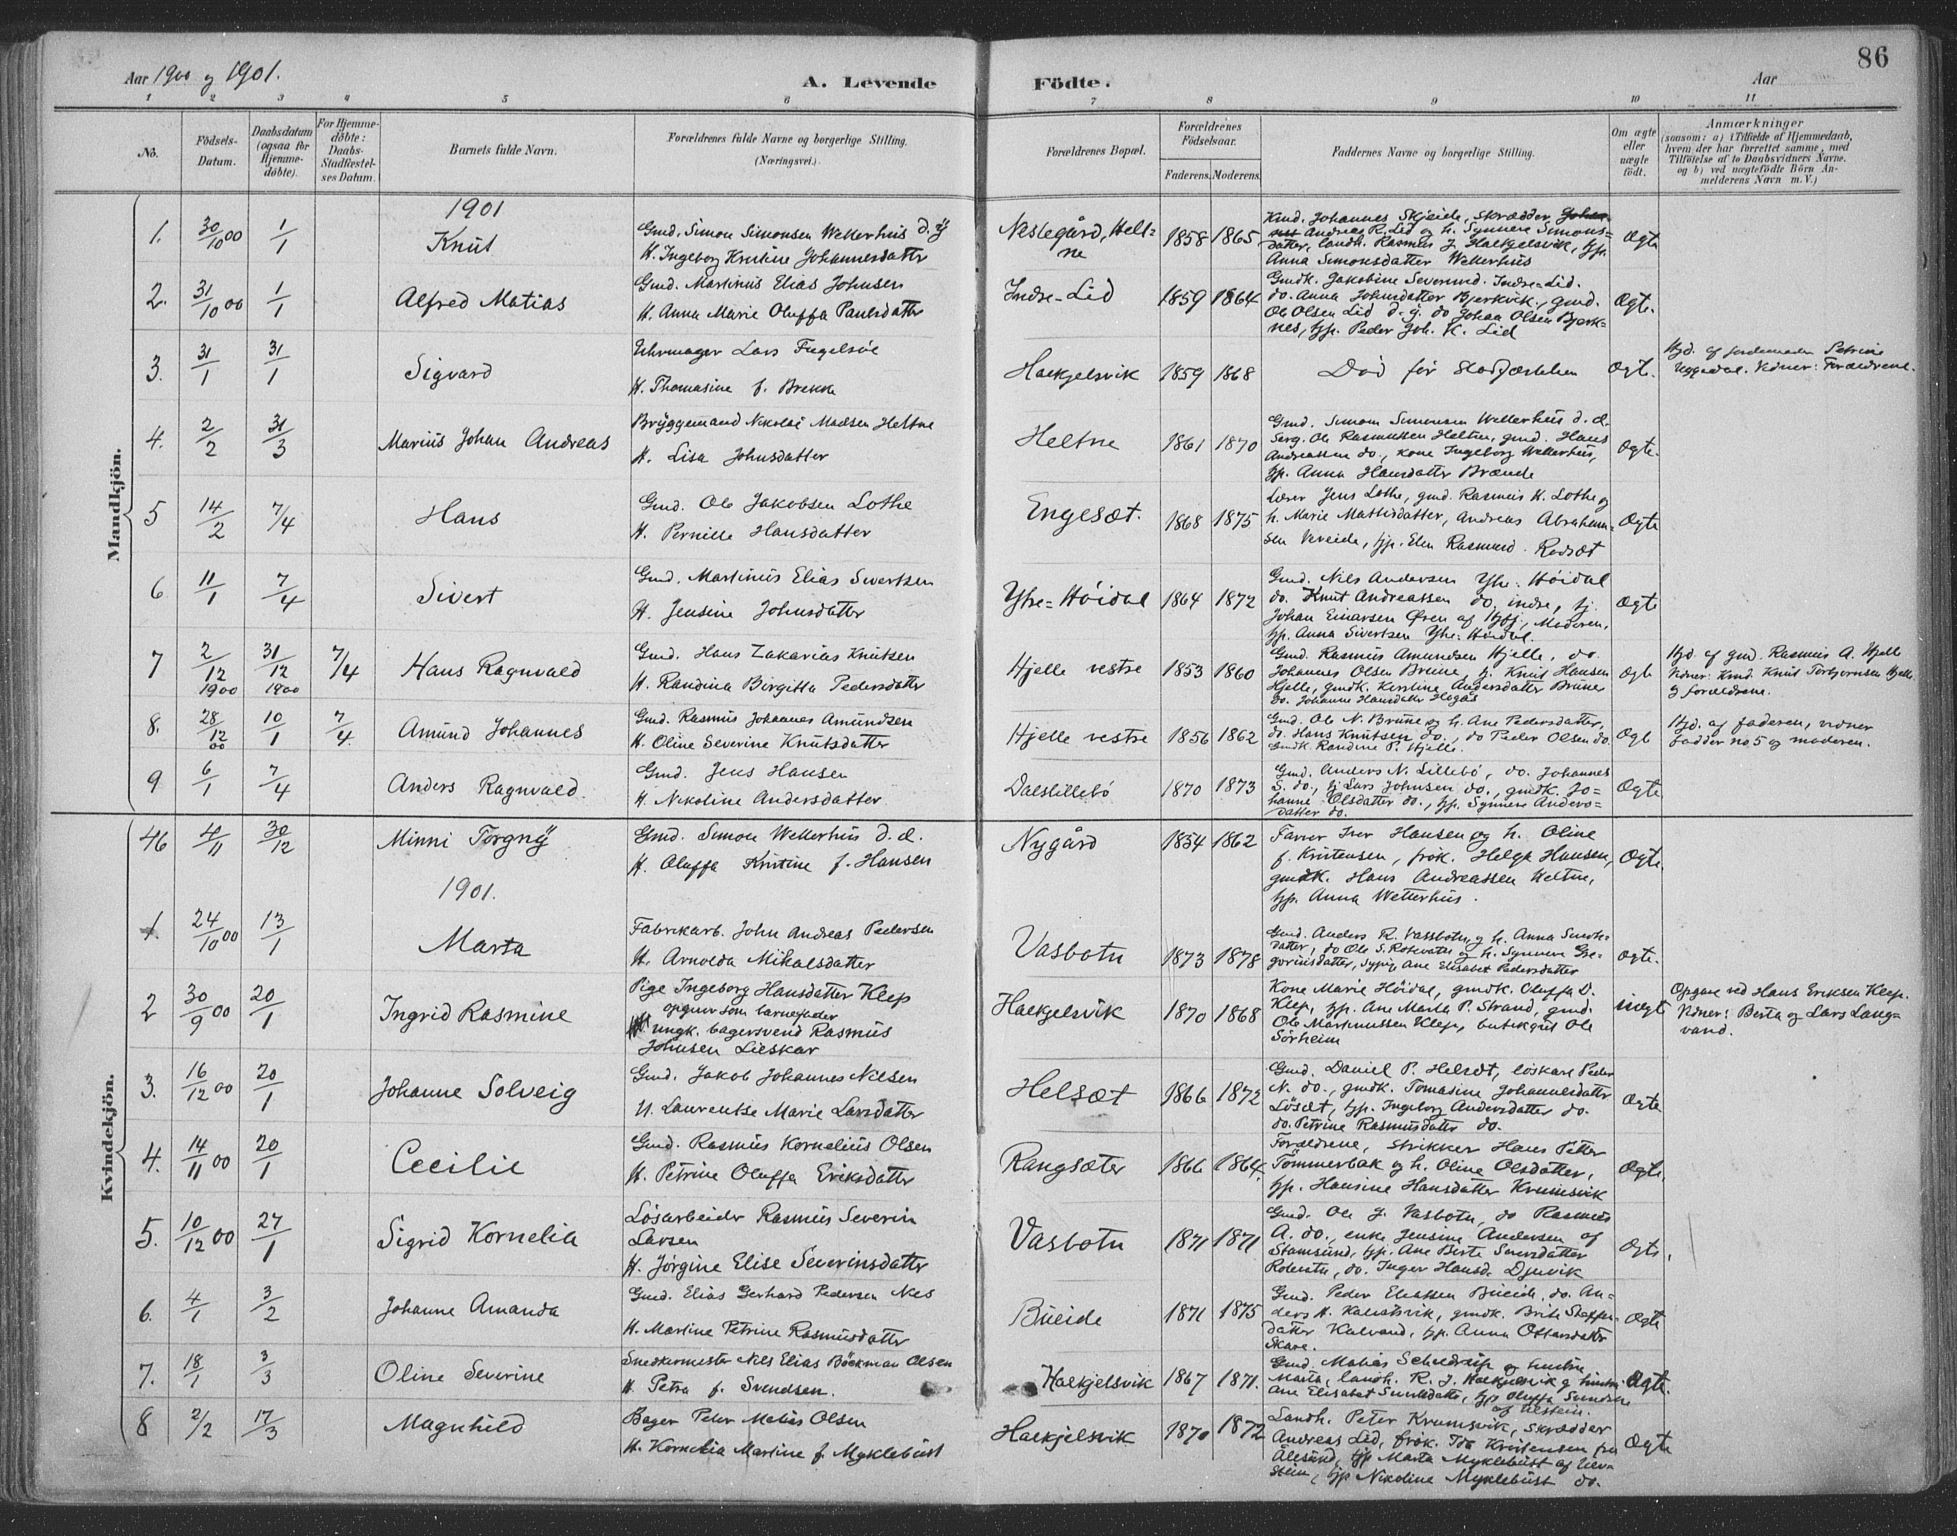 86
Aar 1900 og 1901.
A. Levende Födte.
Aar
1 2 3 4 5 6 7 8 9 10 11
No.
Födsels-Datum.
Daabsdatum (ogsaa for Hjemme-döbte).
For Hjemme-döbte: Daabs-Stadfæstel-ses Datum.
Barnets fulde Navn.
Forældrenes fulde Navne og borgerlige Stilling.
(Næringsvei.)
Forældrenes Bopæl.
Forældrenes Födselsaar.
Faderens. Moderens.
Faddernes Navne og borgerlige Stilling.
Om ægte eller uægte födt.
Anmærkninger
(saasom: a) i Tilfælde af Hjemmedaab, hvem der har forrettet samme, med Tilföielse af to Daabsvidners Navne, og b) ved uægtefödte Börn Anmelderens Navn m. V.)
Mandkjön.
1901
1. 30/10 00 1/1 Knut
Gmd. Simon Simonsen Wetterhus d. y
H. Ingeborg Kristine Johannesdatter
Neslegård, Helt=
ne
1858 1865
Kmd. Johannes Skjeide, skrædder
Andreas R. Lid og h. Synnere Simons=
datter, landh. Rasmus J. Haekjelsvik, tjp.
Anna Simonsdatter Wetterhus
Ægte
2. 31/10 00 1/1 Alfred Matias
Gmd. Martinus Elias Johnsen
H. Anna Marie Oluffa Paulsdatter
Indre-Lid
1859 1864
Gmdk. Jakobine Severinsd. Indre-Lid.
do. Anna Johnsdatter Bjerkvik, gmd.
Ole Olsen Lid d. y. do Johan Olsen Bjerk=
nes, tjp. Peder Joh. K. Lid
Ægte.
3. 31/1 31/1 Sigvard
Uhrmager Lars Fugelsöe
H. Thomasine f. Brekke
Haekjelsvik
1859 1868
Död för Stadfæstelsen
Ægte.
Hjd. af Jordemoder Petrine
Uggedal. Vidner: Forældrene.
4. 2/2 31/3 Marius Johan Andreas
Bryggemand Nikolai Madsen Heltne
H. Lisa Johnsdatter
Heltne
1861 1870
Gmd. Simon Simonsen Wetterhus d. æ.
Serg. Ole Rasmussen Heltne, gmd. Hans
Andreassen do., kone Ingeborg Wetterhus,
tjp. Anna Hansdatter Brænde
Ægte.
5 14/2 7/4 Hans
Gmd. Ole Jakobsen Lothe
H. Pernille Hansdatter
Engesæt.
1868 1875
Lærer Jens Lothe, gmd. Rasmus H. Lothe og
h. Marie Mathisdatter, Andreas Abraham=
sen Vereide, tjp. Elen Rasmusd. Rodsæt
Ægte
6 11/1 7/4 Sivert
Gmd. Martinus Elias Sivertsen
H. Jensine Johnsdatter
Ytre=Höidal
1864 1872
Gmd. Nils Andersen Ytre=Höidal
do. Knut Andreassen do. indre, tj.
Johan Einarsen Øren af, Moderen,
tjp. Anna Sivertsen Ytre=Höidal.
Ægte
7 2/12 1900 31/12 1900 7/4 Hans Ragnvald
Gmd. Hans Zakarias Knutsen
H. Randina Birgitta Pedersdatter
Hjelle vestre
1853 1860
Gmd. Rasmus Amundsen Hjelle, do.
Johannes Olsen Brune, tj. Knut Hansen
Hjelle, gmdk. Kirstine Andersdatter Brune
do. Johanne Hansdatter
Ægte
Hjd. af gmd. Rasmus A. Hjelle
Vidner: Kmd. Knut Torbjornsen Hjelle
og forældrene.
8. 28/12 00 10/1 7/4 Amund Johannes
Gmd. Rasmus Johannes Amundsen
H. Oline Severine Knutsdatter
Hjelle vestre
1856 1862
Gmd. Ole N. Brune og h. Ane Pedersdatter,
do. Hans Knutsen do., do Peder Olsen do.
Gmdk Randine P. Hjelle.
Ægte
Hjd. af faderen, vidner
fadder no 5 og moderen.
9 6/1 7/4 Anders Ragnvald
Gmd. Jens Hansen
H. Nikoline Andersdatter
Dalslillebö
1870 1873
Gmd. Anders N. Lillebö, do. Johannes
S. do., tj. Lars Johnsen do., gmdk. Jo=
hanne Olsdatter do., tjp. Synnere Anders=
datter do.
Ægte
Kvindekjön.
46 4/11 30/12 Minni Torgny
Gmd. Simon Wetterhus d. æ.
H. Oluffa Kristine f. Hansen
Nygård
1854 1862
Farver Iver Hansen og h. Oline
f. Kristensen, frök. Helga Hansen,
gmdk. Hans Andreassen Heltne,
tjp. Anna Wetterhus.
Ægte.
1901.
1 24/10 00 13/1 Marta
Fabrikarb. John Andreas Pedersen
H. Arnolda Mikalsdatter
Vasbotn
1873 1878
Gmd. Anders R. Vassbotn og h. Anna
datter, do Ole S. Rotevatn og h. Synnere Gre=
goriusdatter, Sypig. Ane Elisabet Pedersdatter
Ægte.
2 30/9 00 20/1 Ingrid Rasmine
Pige Ingeborg Hansdatter Klep
opgiver som barnefader
ungk. bagersvend Rasmus
Johnsen Lieskar
Haekjelsvik
1870 1868
Kone Marie Höidal, gmdk. Oluffa O.
Klep, tjp. Ane Marta P. Strand, gmd.
Ole Martinussen Klep, butikgut Ole
Sörheim
uægt
Opgave ved Hans Eriksen Klep.
Vidner: Berta og Lars Lang=
vand.
3. 16/12 00 20/1 Johanne Solveig
Gmd. Jakob Johannes Nilsen
H. Laurentse Marie Larsdatter
Helsæt
1866 1872
Gmd. Daniel P. Helsæt, löskarl Peder
N. do., gmdk. Tomasine Johannesdatter
Løsæt, tjp. Ingeborg Andersdatter do.
do. Petrine Rasmusdatter do.
Ægte
4. 14/11 00 20/1 Cecilie
Gmd. Rasmus Kornelius Olsen
H. Petrine Oluffa Eriksdatter
Rangsæter
1866 1864.
Forældrene, Strikker Hans Petter
Tömmerbak og h. Oline Olsdatter,
tjp. Hansine Hansdatter Krumsvik
Ægte.
5. 10/12 00 27/1 Sigrid Kornelia
Lösarbeider Rasmus Severin
Larsen
H. Jørgine Elise Severinsdatter
Vasbotn
1871 1871
Gmd. Ole J. Vasbotn, do Rasmus
A. do., enke Jensine Andersen af
Stamsund, tjp. Ane Berte
Rotevatn, do. Inger Hansd. Djuvik
Ægte.
6. 4/1 3/2 Johanne Amanda
Gmd. Elias Gerhard Pedersen Nes
H. Martine Petrine Rasmusdatter
Bueide
1871 1875
Gmd. Peder Eliassen Bueide, do. An=
ders H. Kalvatsvik, gmdk. Brite Steffen=
datter Kalvand, tjp. Anna Ottarsdatter
Skare.
Ægte
7. 18/1 3/3 Oline Severine
Snedkermester Nils Elias Böckman Olsen
H. Petra f. Svendsen.
Haekjelsvik
1867 1871.
Gmd. Matias Scheldrup og hustru
Marta, landh. R. J. Haekjelsvik og hustru
Ane Elisabet, tjp Oluffa
af Ulstein.
Ægte.
8 2/2 17/3 Magnhild
Bager Peter Matias Olsen
H. Kornelia Martine f. Myklebust
Haekjelsvik
1870 1872
Landh. Peter Krumsvik, skrædder
Andreas Lid, frök. Ida Kristensen fra
Ålesund, tjp Marta Myklebust af Ulv=
stein, tjp Nikoline Myklebust do.
Ægte